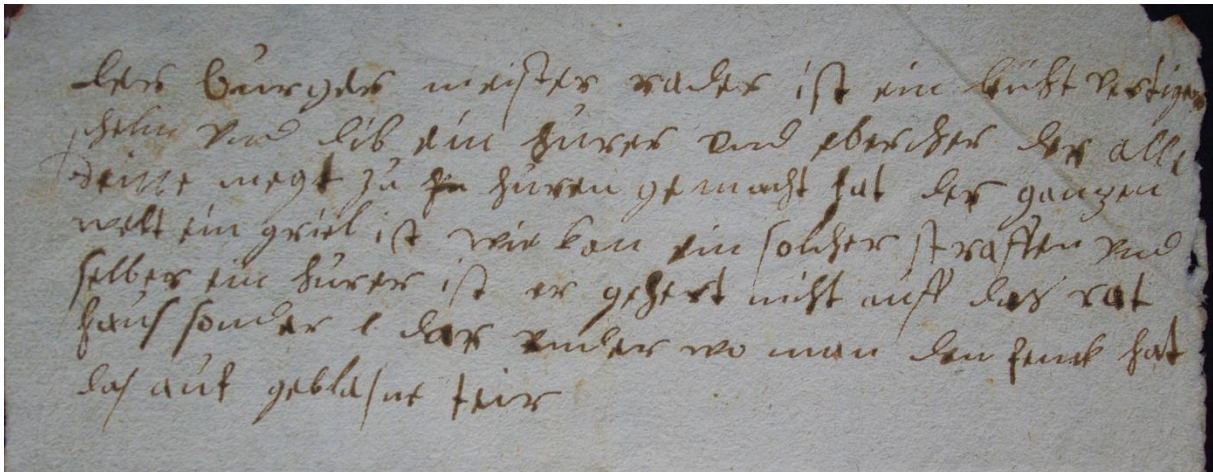 der burger meister rader ist ein leicht vertiger
schelm vnd dib ein hurer vnd ebercher der alle
seine megt zu huren gemacht hat der ganzen
welt ein griel ist wie kan ein solcher straffen vnd
selber ein hurer ist er gehert nicht auff das rat
haus sonder dar under wo man den henck hat
das auf geblasne teir